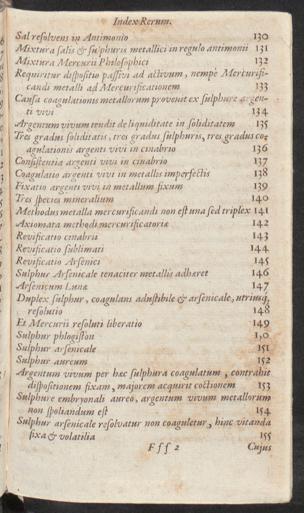 Index Rerum.
Sal resolvens in Antimonio 130
Mixtura salis & sulphuris metallici in regulo antimonii 131
Mixtura Mercurii Philosophici 132
Requiritur dispositio passivi ad activum, nempè Mercurifi-
candi metalli ad Mercurificationem 133
Causa coagulationis metallorum provenit ex sulphure argen-
ti vivi 134
Argentum vivum tendit de liquiditate in soliditatem 135
Tres gradus soliditatis, tres gradus sulphuris, tres gradus co-
agulationis argenti vivi in cinabrio 136
Consistentia argenti vivi in cinabrio 137
Coagulatio argenti vivi in metallis imperfectis 138
Fixatio argenti vivi in metallum fixum 139
Tres species mineralium 140
Methodus metalla mercurificandi non est una sed triplex 141
Axiomata methodi mercurificatoriæ 142
Revificatio cinabrii 143
Revificatio sublimati 144
Revificatio Arsenici 145
Sulphur Arsenicale tenaciter metallis adhæret 146
Arsenicum Lunæ 147
Duplex sulphur, coagulans adustibile & arsenicale, utriusq́;
resolutio 148
Et Mercurii resoluti liberatio 149
Sulphur phlogiston 150
Sulphur arsenicale 151
Sulphur aureum 152
Argentum vivum per hæc sulphura coagulatum, contrahit
dispositionem fixam, majorem acquirit coctionem 153
Sulphure embryonali aureo, argentum vivum metallorum
non spoliandum est 154
Sulphur arsenicale resolvatur non coaguletur, hinc vitanda
fixa & volatilia 155
Fff 2 Cujus